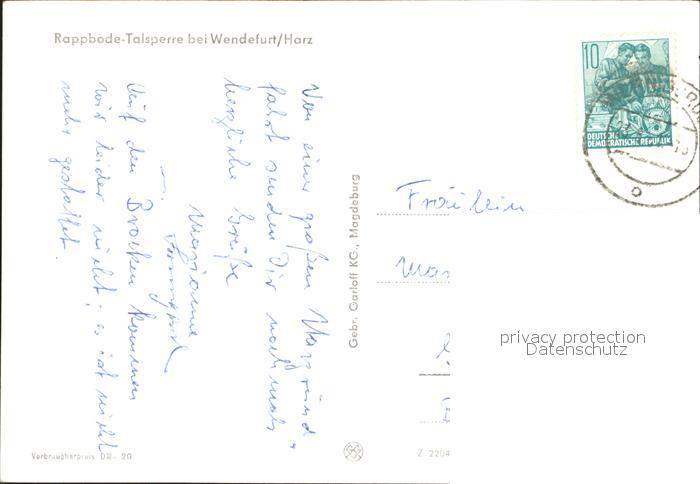 Rappbode-Talsperre bei Wendefurt/Harz
10
DEUTSCHE
DEMOKRATISCHE REPUBLIK
Von einer großen Harzrund-
fahrt senden Dir nochmals
herzliche Grüße
Marianne
Auf den Brocken kommen
wir leider nicht; es ist nicht
mehr gestattet.
Gebr. Garloff KG., Magdeburg
Fräulein
privacy protection
Datenschutz
Verbraucherpreis DM -.20
Z 2204